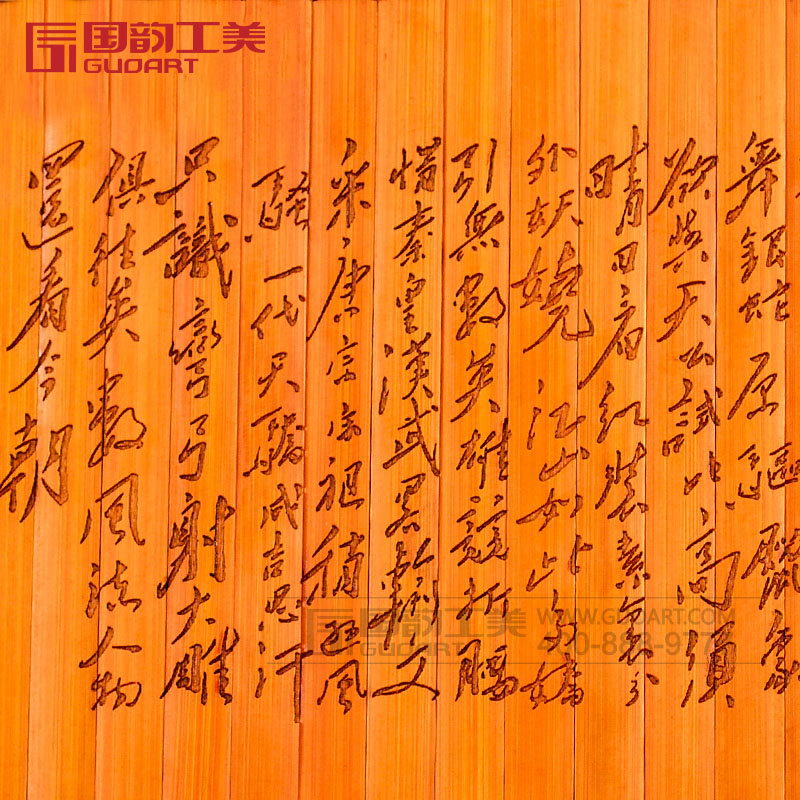 国韵工美
GUOART
舞銀蛇原驅臘象
欲與天公試比高須
晴日看紅裝素裹分
外妖嬈 江山如此多嬌
引無數英雄競折腰
惜秦皇漢武畧輸文
采唐宗宋祖稍遜風
騷一代天驕成吉思汗
只識彎弓射大雕
俱往矣數風流人物
還看今朝
国韵工美
WWW.GUOART.COM